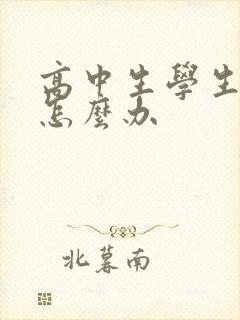 高中生學生
怎麼办
北暮南